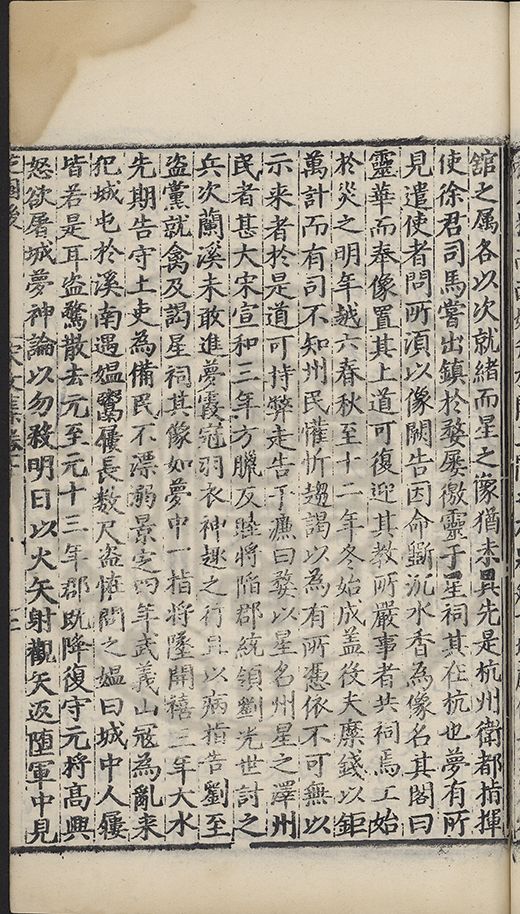 舘之属各以次就緒而星之像猶未具先是杭州衛都指揮
使徐君司馬嘗出鎮於婺屢徼靈于星祠其在杭也夢有所
見遣使者問所湏以像闕告因命斵沉水香為像名其閣曰
靈華而奉像置其上道可復迎其教所嚴事者共祠焉工始
於災之明年越六春秋至十二年冬始成盖役夫縻錢以鉅
萬計而有司不知州民懽忻趨謁以為有所憑依不可無以
示来者於是道可持弊走告于濂曰婺以星名州星之澤州
民者甚大宋宣和三年方臘反睦將陷郡統領劉光世討之
兵次蘭溪未敢進夢霞冠羽衣神趣之行且以病指告劉至
盗黨就禽及謁星祠其像如夢中一指將墜開禧三年大水
先期告守土吏為備民不漂溺景定四年武義山冦為亂来
犯城屯於溪南遇媼鬻屨長数尺盗恠問之媼曰城中人屨
皆若是耳盗驚散去元至元十三年郡既降復守元将髙興
怒欲屠城夢神諭以勿殺明日以火矢射觀矢返墮軍中見